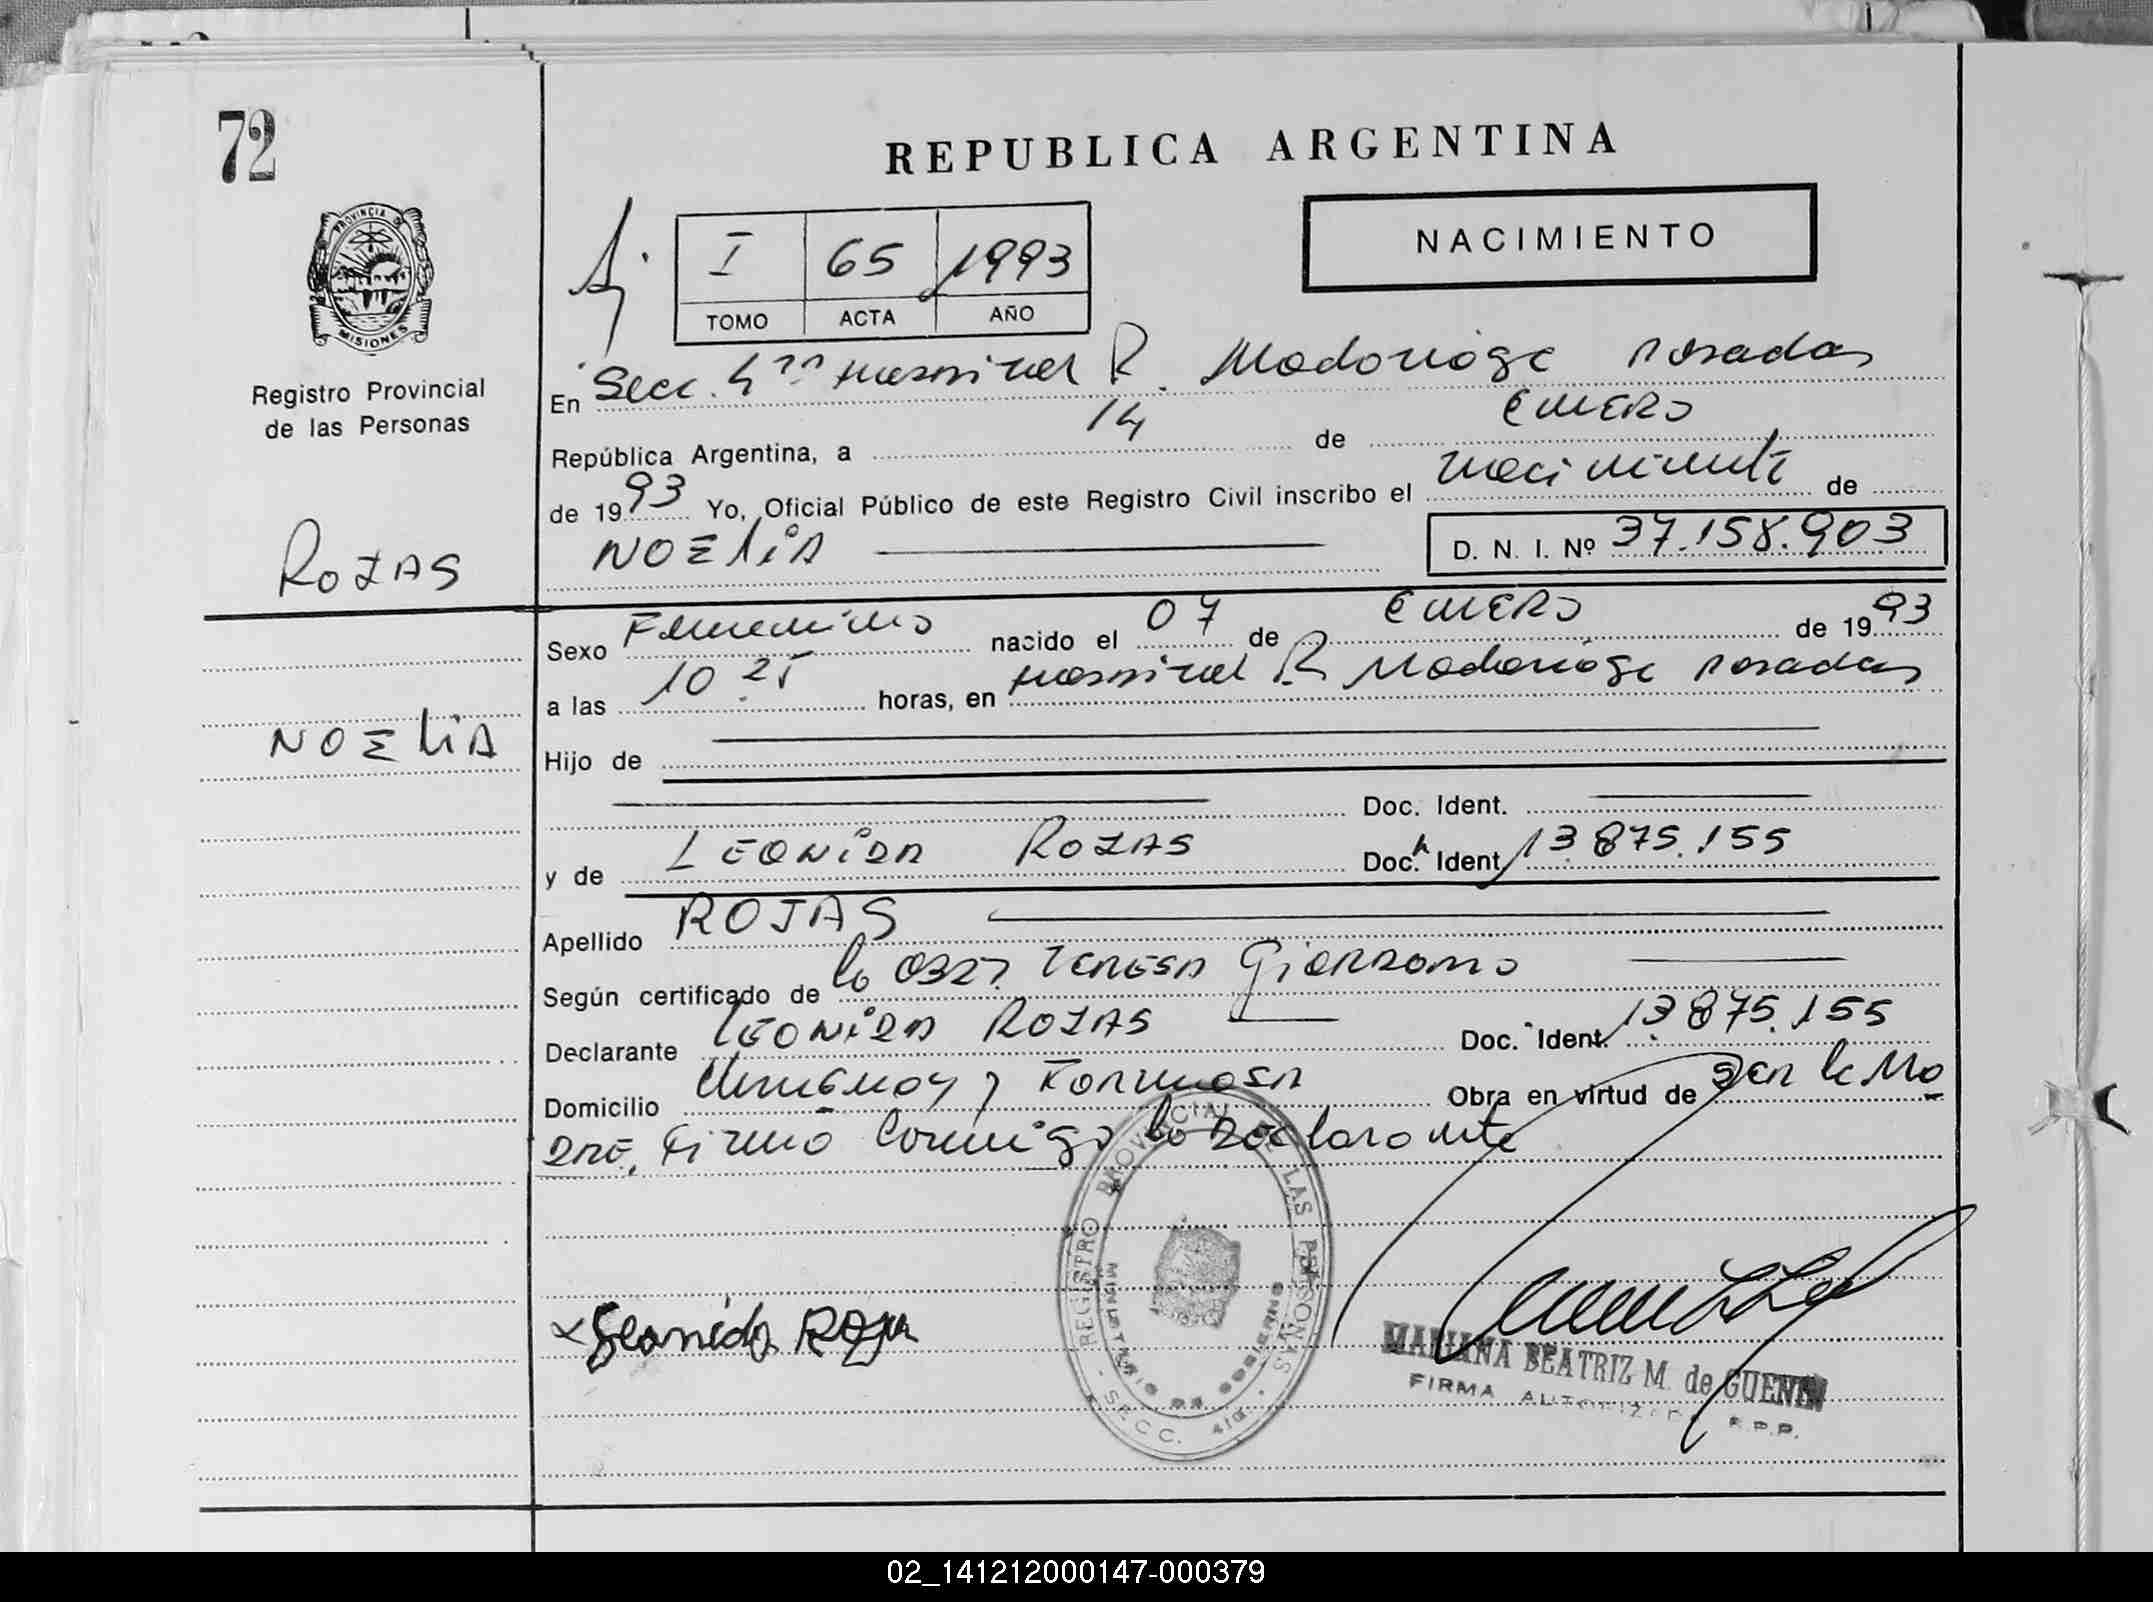 72
REPUBLICA ARGENTINA
NACIMIENTO
I 65 1993
TOMO ACTA AÑO
PROVINCIA DE
MISIONES
Registro Provincial
de las Personas
En Secc. 4ta Hospital R. Madariaga Posadas
República Argentina, a 14 de ENERO
de 1993 Yo, Oficial Público de este Registro Civil inscribo el nacimiento de
NOELIA D. N. I. Nº 37.158.903
ROJAS
Sexo Femenino nacido el 07 de ENERO de 1993
a las 10 25 horas, en Hospital R Madariaga Posadas
NOELIA
Hijo de
Doc. Ident.
y de LEONIDA ROJAS Doc. Ident 13.875.155
Apellido ROJAS
Según certificado de la OBST. TERESA
Declarante LEONIDA ROJAS Doc. Ident. 13.875.155
Domicilio Uruguay y FORMOSA Obra en virtud de ser la Ma
DRE, Firma Conmigo la Declarante
REGISTRO PROVINCIAL DE LAS PERSONAS
MINISTERIO DE GOBIERNO
SECC. 4ta.
Leonida Rojas
MARIANA BEATRIZ M. de GUENIN
FIRMA AUTORIZADA R.P.P.
02_141212000147-000379